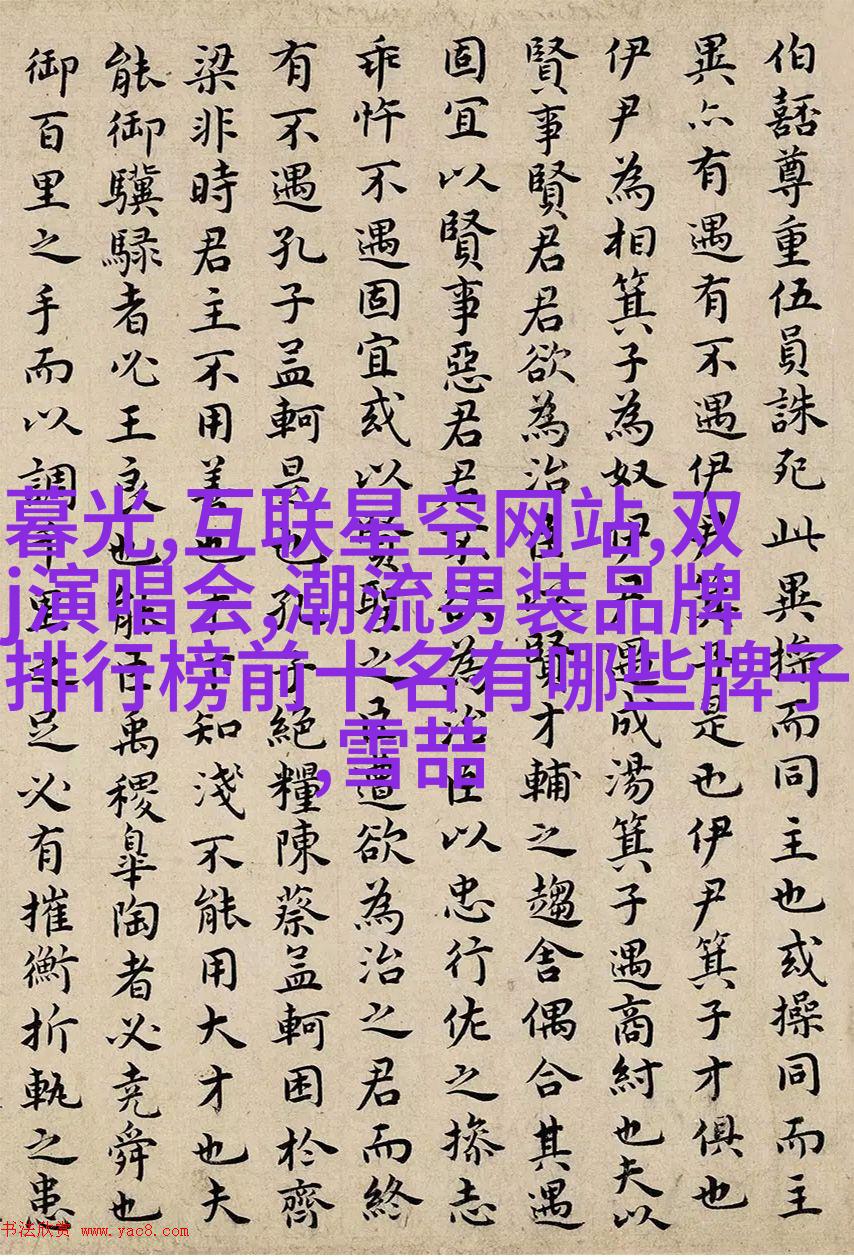 伯嚭尊重伍員誅死此異操而同主也或操同而主
異亦有遇有不遇伊尹箕子是也伊尹箕子才俱也
伊尹為相箕子為奴伊尹遇成湯箕子遇商紂也夫以
賢事賢君君欲為治臣以賢才輔之趨舍偶合其遇
固宜以賢事惡君君不欲為治臣以忠行佐之操志
乖忤不遇固宜或以賢聖之臣遭欲為治之君而終
有不遇孔子孟軻是也孔子絕糧陳蔡孟軻困於齊
梁非時君主不用善也才下知淺不能用大才也夫
能御驥騄者必王良也能臣禹稷皐陶者必堯舜也
御百里之手而以調千里之足必有摧衡折軛之患
暮光,互联星空网站,双
j演唱会,潮流男装品牌
排行榜前十名有哪些牌子
,雪喆
书法欣赏 www.yac8.com